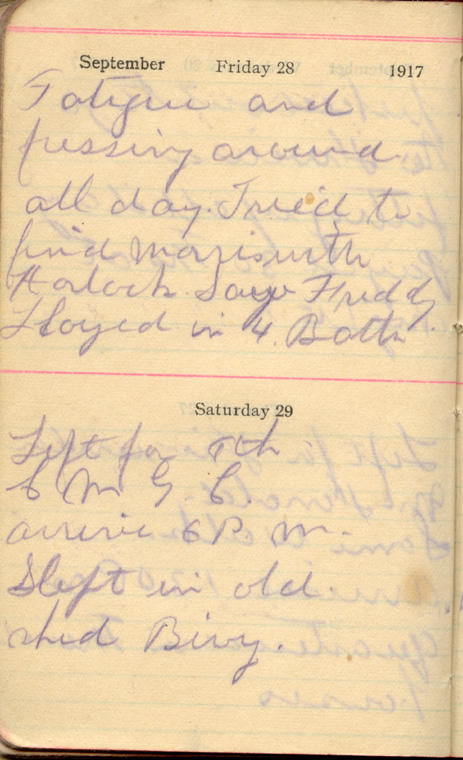 September Friday 28 1917
Fatigue and
fussing around
all day. Tried to
find Morriswith
Horlock. Saw Freddy
Lloyed in 4. Batt
Saturday 29
Left for 8th
C M G C.
arrive 6 P. M.
Sleft in old
shed Bivy.